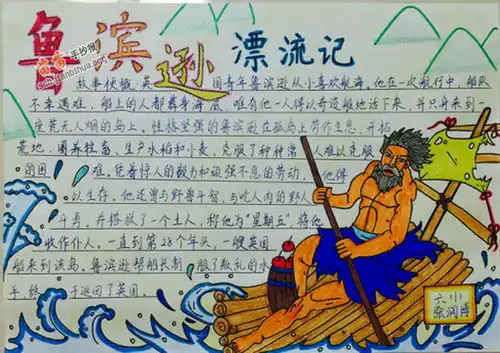 鲁滨逊漂流记
故事梗概:英国青年鲁滨逊从小喜欢航海,他在一次航行中,船队
不幸遇难,船上的人都葬身海底,唯有他一人得以奇迹般地活下来,并只身来到一
座荒无人烟的岛上。性格坚强的鲁滨逊在孤岛上劳作生息,开拓
荒地,圈养牲畜,生产水稻和小麦,克服了种种常人难以克服
的困难,凭着惊人的毅力和顽强不息的劳动,他得
以生存。他还曾与野兽斗智,与吃人肉的野人
斗勇。并搭救了一个土人,称他为“星期五”,将他
收作仆人,一直到第28个年头,一艘英国
船来到该岛,鲁滨逊帮船长制服了叛乱的水
手,终于返回了英国。
六小
张润博
手抄报